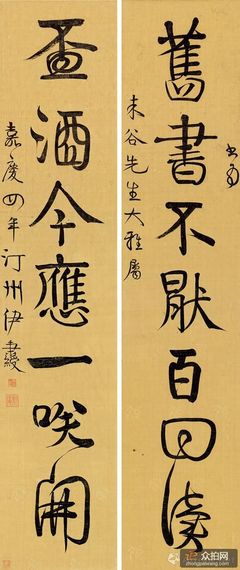 舊書不厭百回讀
未谷先生大雅屬
盃酒今應一咲開
嘉慶四年汀州伊秉綬
众拍网
zhongpaiwang.com